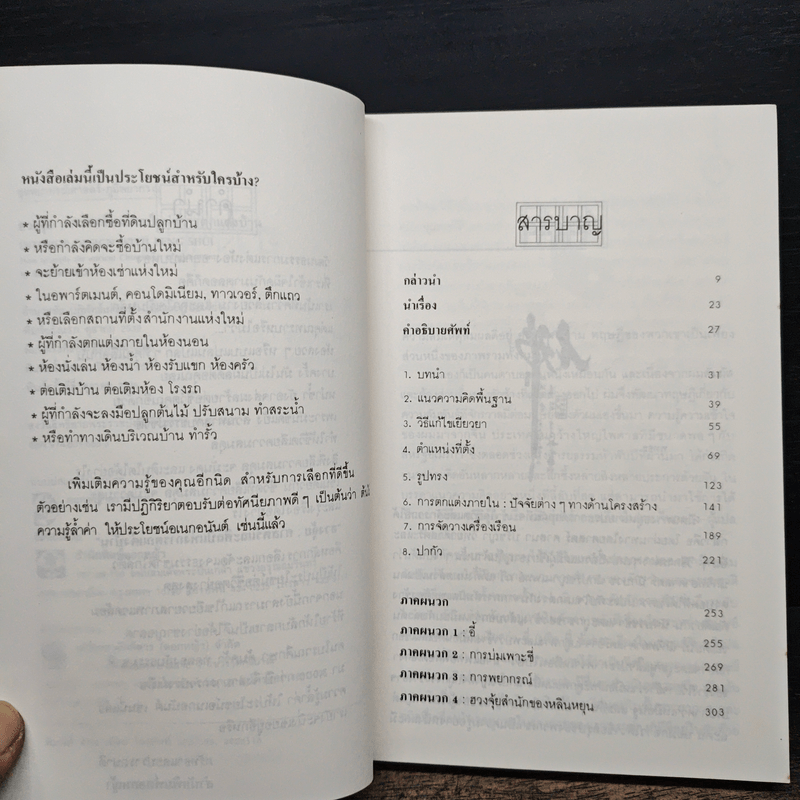 หนังสือเล่มนี้เป็นประโยชน์สำหรับใครบ้าง?
* ผู้ที่กำลังเลือกซื้อที่ดินปลูกบ้าน
* หรือกำลังคิดจะซื้อบ้านใหม่
* จะย้ายเข้าห้องเช่าแห่งใหม่
* ในอพาร์ตเมนต์, คอนโดมิเนียม, ทาวเวอร์, ตึกแถว
* หรือเลือกสถานที่ตั้งสำนักงานแห่งใหม่
* ผู้ที่กำลังตกแต่งภายในห้องนอน
* ห้องนั่งเล่น ห้องน้ำ ห้องรับแขก ห้องครัว
* ต่อเติมบ้าน ต่อเติมห้อง โรงรถ
* ผู้ที่กำลังจะลงมือปลูกต้นไม้ ปรับสนาม ทำสระน้ำ
* หรือทำทางเดินบริเวณบ้าน ทำรั้ว
เพิ่มเติมความรู้ของคุณอีกนิด สำหรับการเลือกที่ดีขึ้น
ตัวอย่างเช่น เรามีปฏิกิริยาตอบรับต่อทัศนียภาพดี ๆ เป็นต้นว่า
ความรู้ล้ำค่า ให้ประโยชน์อเนกอนันต์ เช่นนี้แล้ว
สารบาญ
กล่าวนำ 9
นำเรื่อง 23
คำอธิบายศัพท์ 27
1. บทนำ 31
2. แนวความคิดพื้นฐาน 39
3. วิธีแก้ไขเยียวยา 55
4. ตำแหน่งที่ตั้ง 69
5. รูปทรง 123
6. การตกแต่งภายใน : ปัจจัยต่าง ๆ ทางด้านโครงสร้าง 141
7. การจัดวางเครื่องเรือน 189
8. ปากัว 221
ภาคผนวก 253
ภาคผนวก 1 : อี้ 255
ภาคผนวก 2 : การบ่มเพาะชี่ 269
ภาคผนวก 3 : การพยากรณ์ 281
ภาคผนวก 4 : ฮวงจุ้ยสำนักของหลินหยุน 303